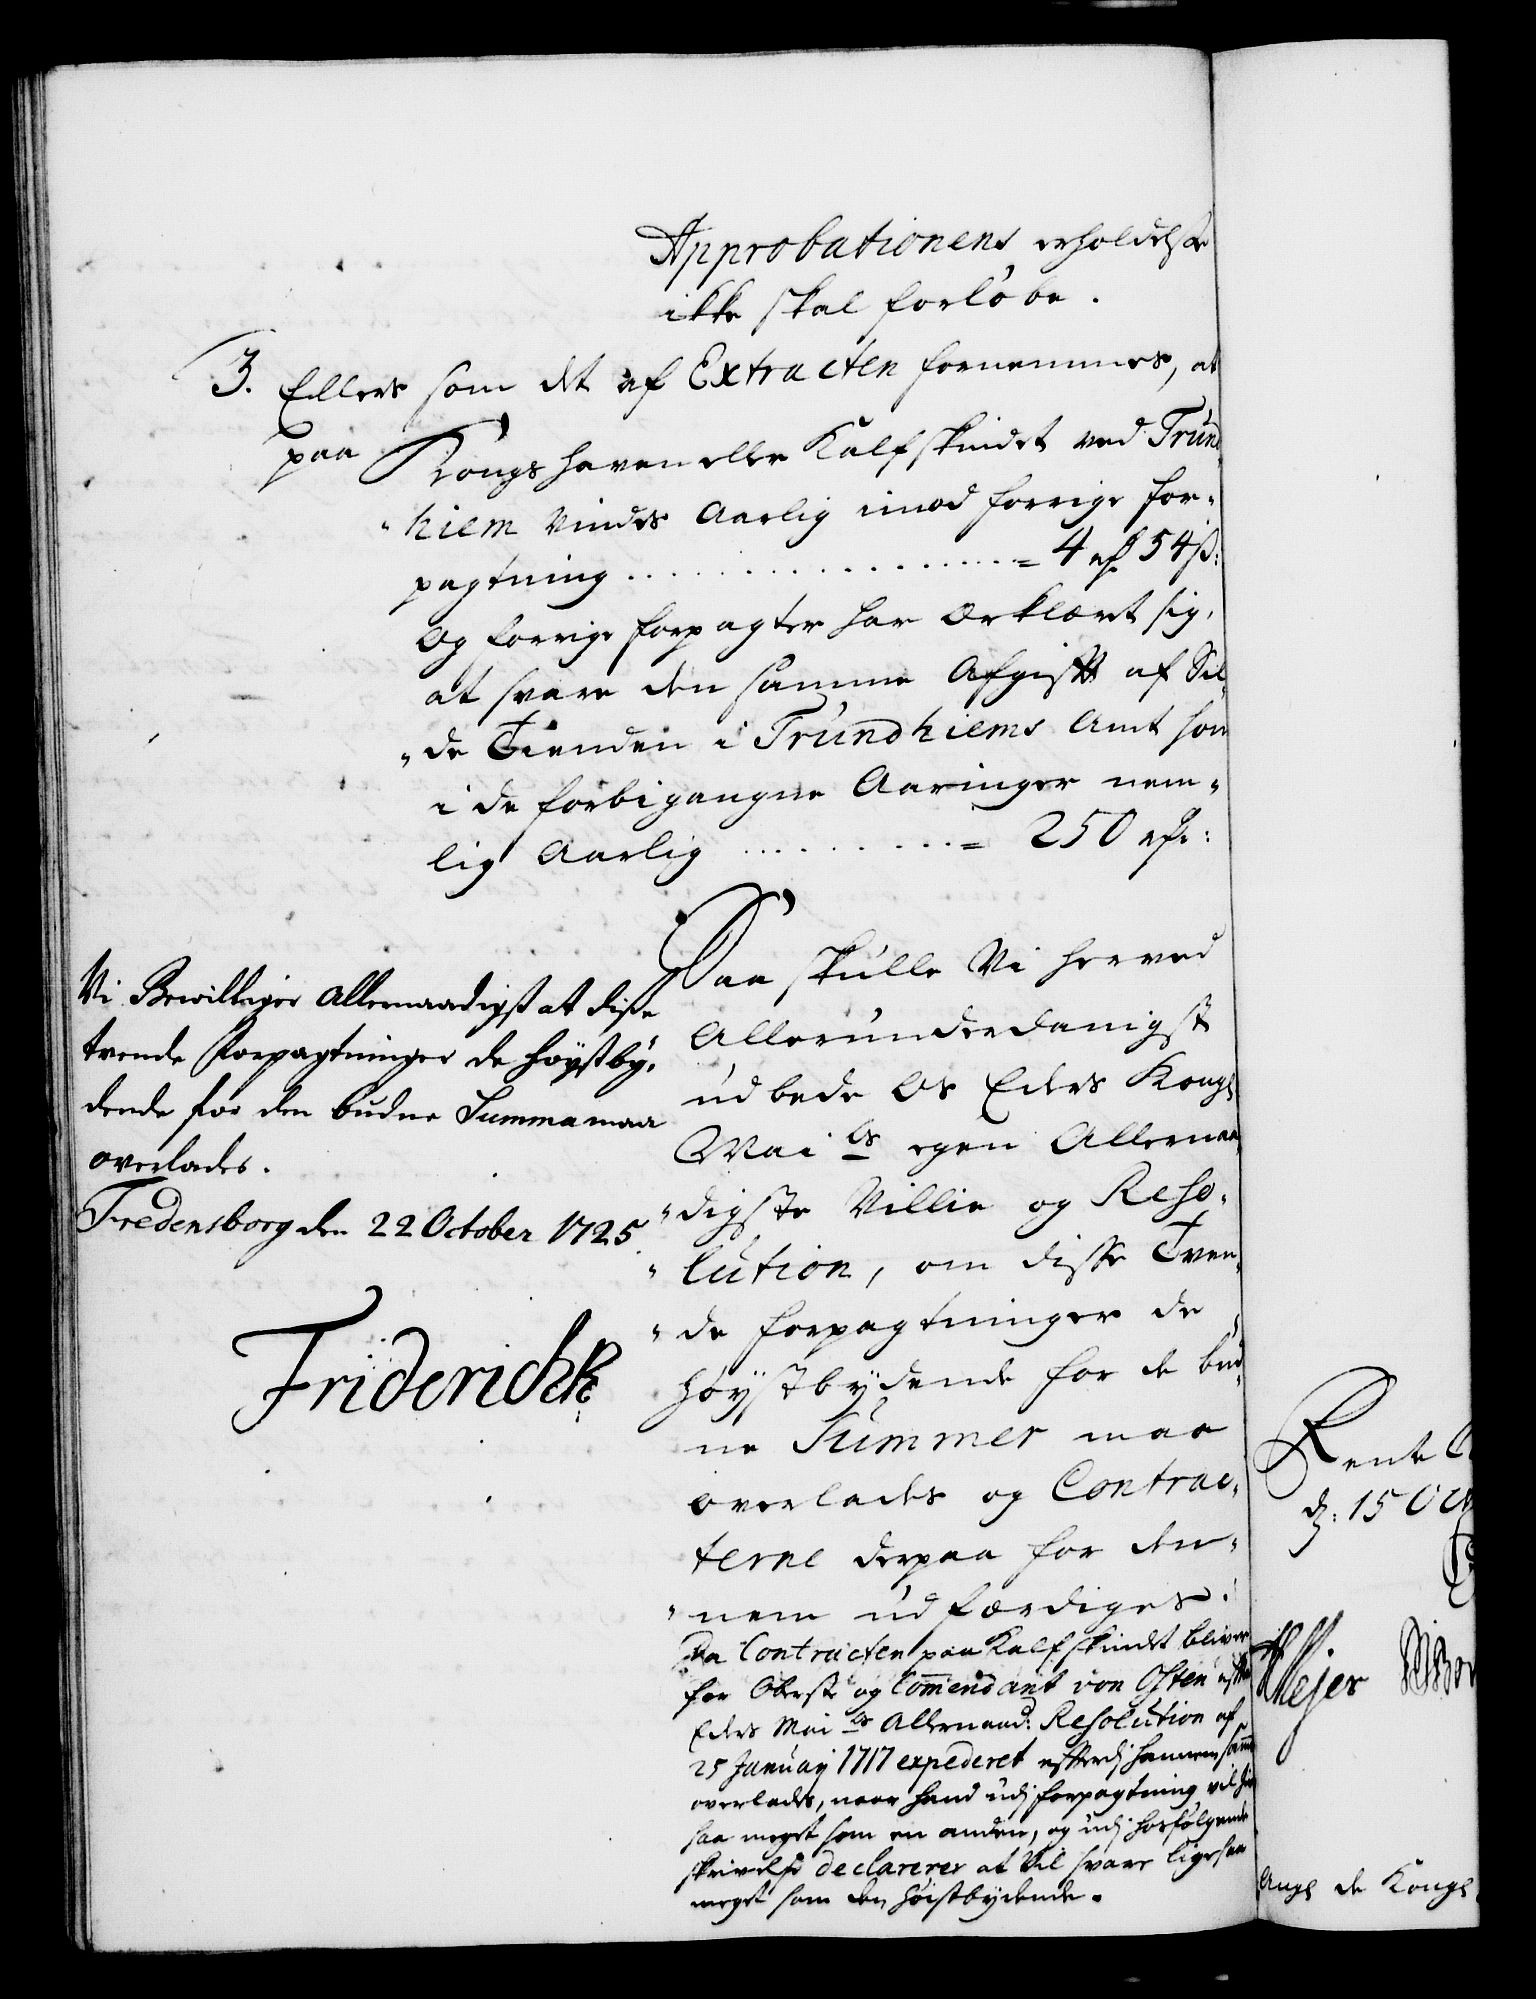 Approbationens erholdelse
ikke skal forløbe.
3. Ellers som det af Extracten fornemmes, at
paa Kongshaven eller Kalfskindet ved Trund
hiem vindes Aarlig imod forrige for-
pagtning . . . . . . . . . = 4 rdr 54 ß:
og forrige forpagter har Erklæret sig,
at svare den samme Afgift af Sil-
de Tienden i Trundhiems Amt som
i de forbigangne Aaringer nem-
lig Aarlig . . . . . . . . = 250 rdr:
Vi Bewilliger allernaadigst at disse
tvende Forpagtninger de høystby-
dende for den budne Summa maa
overlades.
Fredensborg den 22 October 1725
Friderich R
Saa skulle Vi herved
Allerunderdanigst
udbede Os Eders Kongl
Mai ts egen Allernaa-
digste Villie og Reso-
lution, om disse Tven-
de forpagtninger de
høystbydende for de bud-
ne Summer maa
overlades og Contrac-
terne derpaa for den-
nem udfærdiges.
Da Contracten paa Kalfskindet bliver
for Oberste og Commendant von Osten efter
Eders Mai ts Allernaad: Resolution af
25 Januarij 1717 expederet efterdj hannem samme
overlades, naar hand udj forpagtning vil give
saa meget som en anden, og udj hosfølgende
skrivelse declarerer at vil svare ligesaa
meget som den høistbydende.
Rente
d: 15 Oct
Meyer
Ang de Kongl